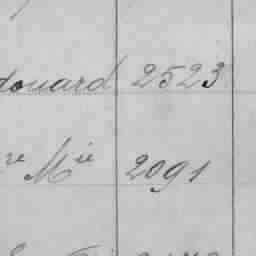 douard 2523
re Mie 2091